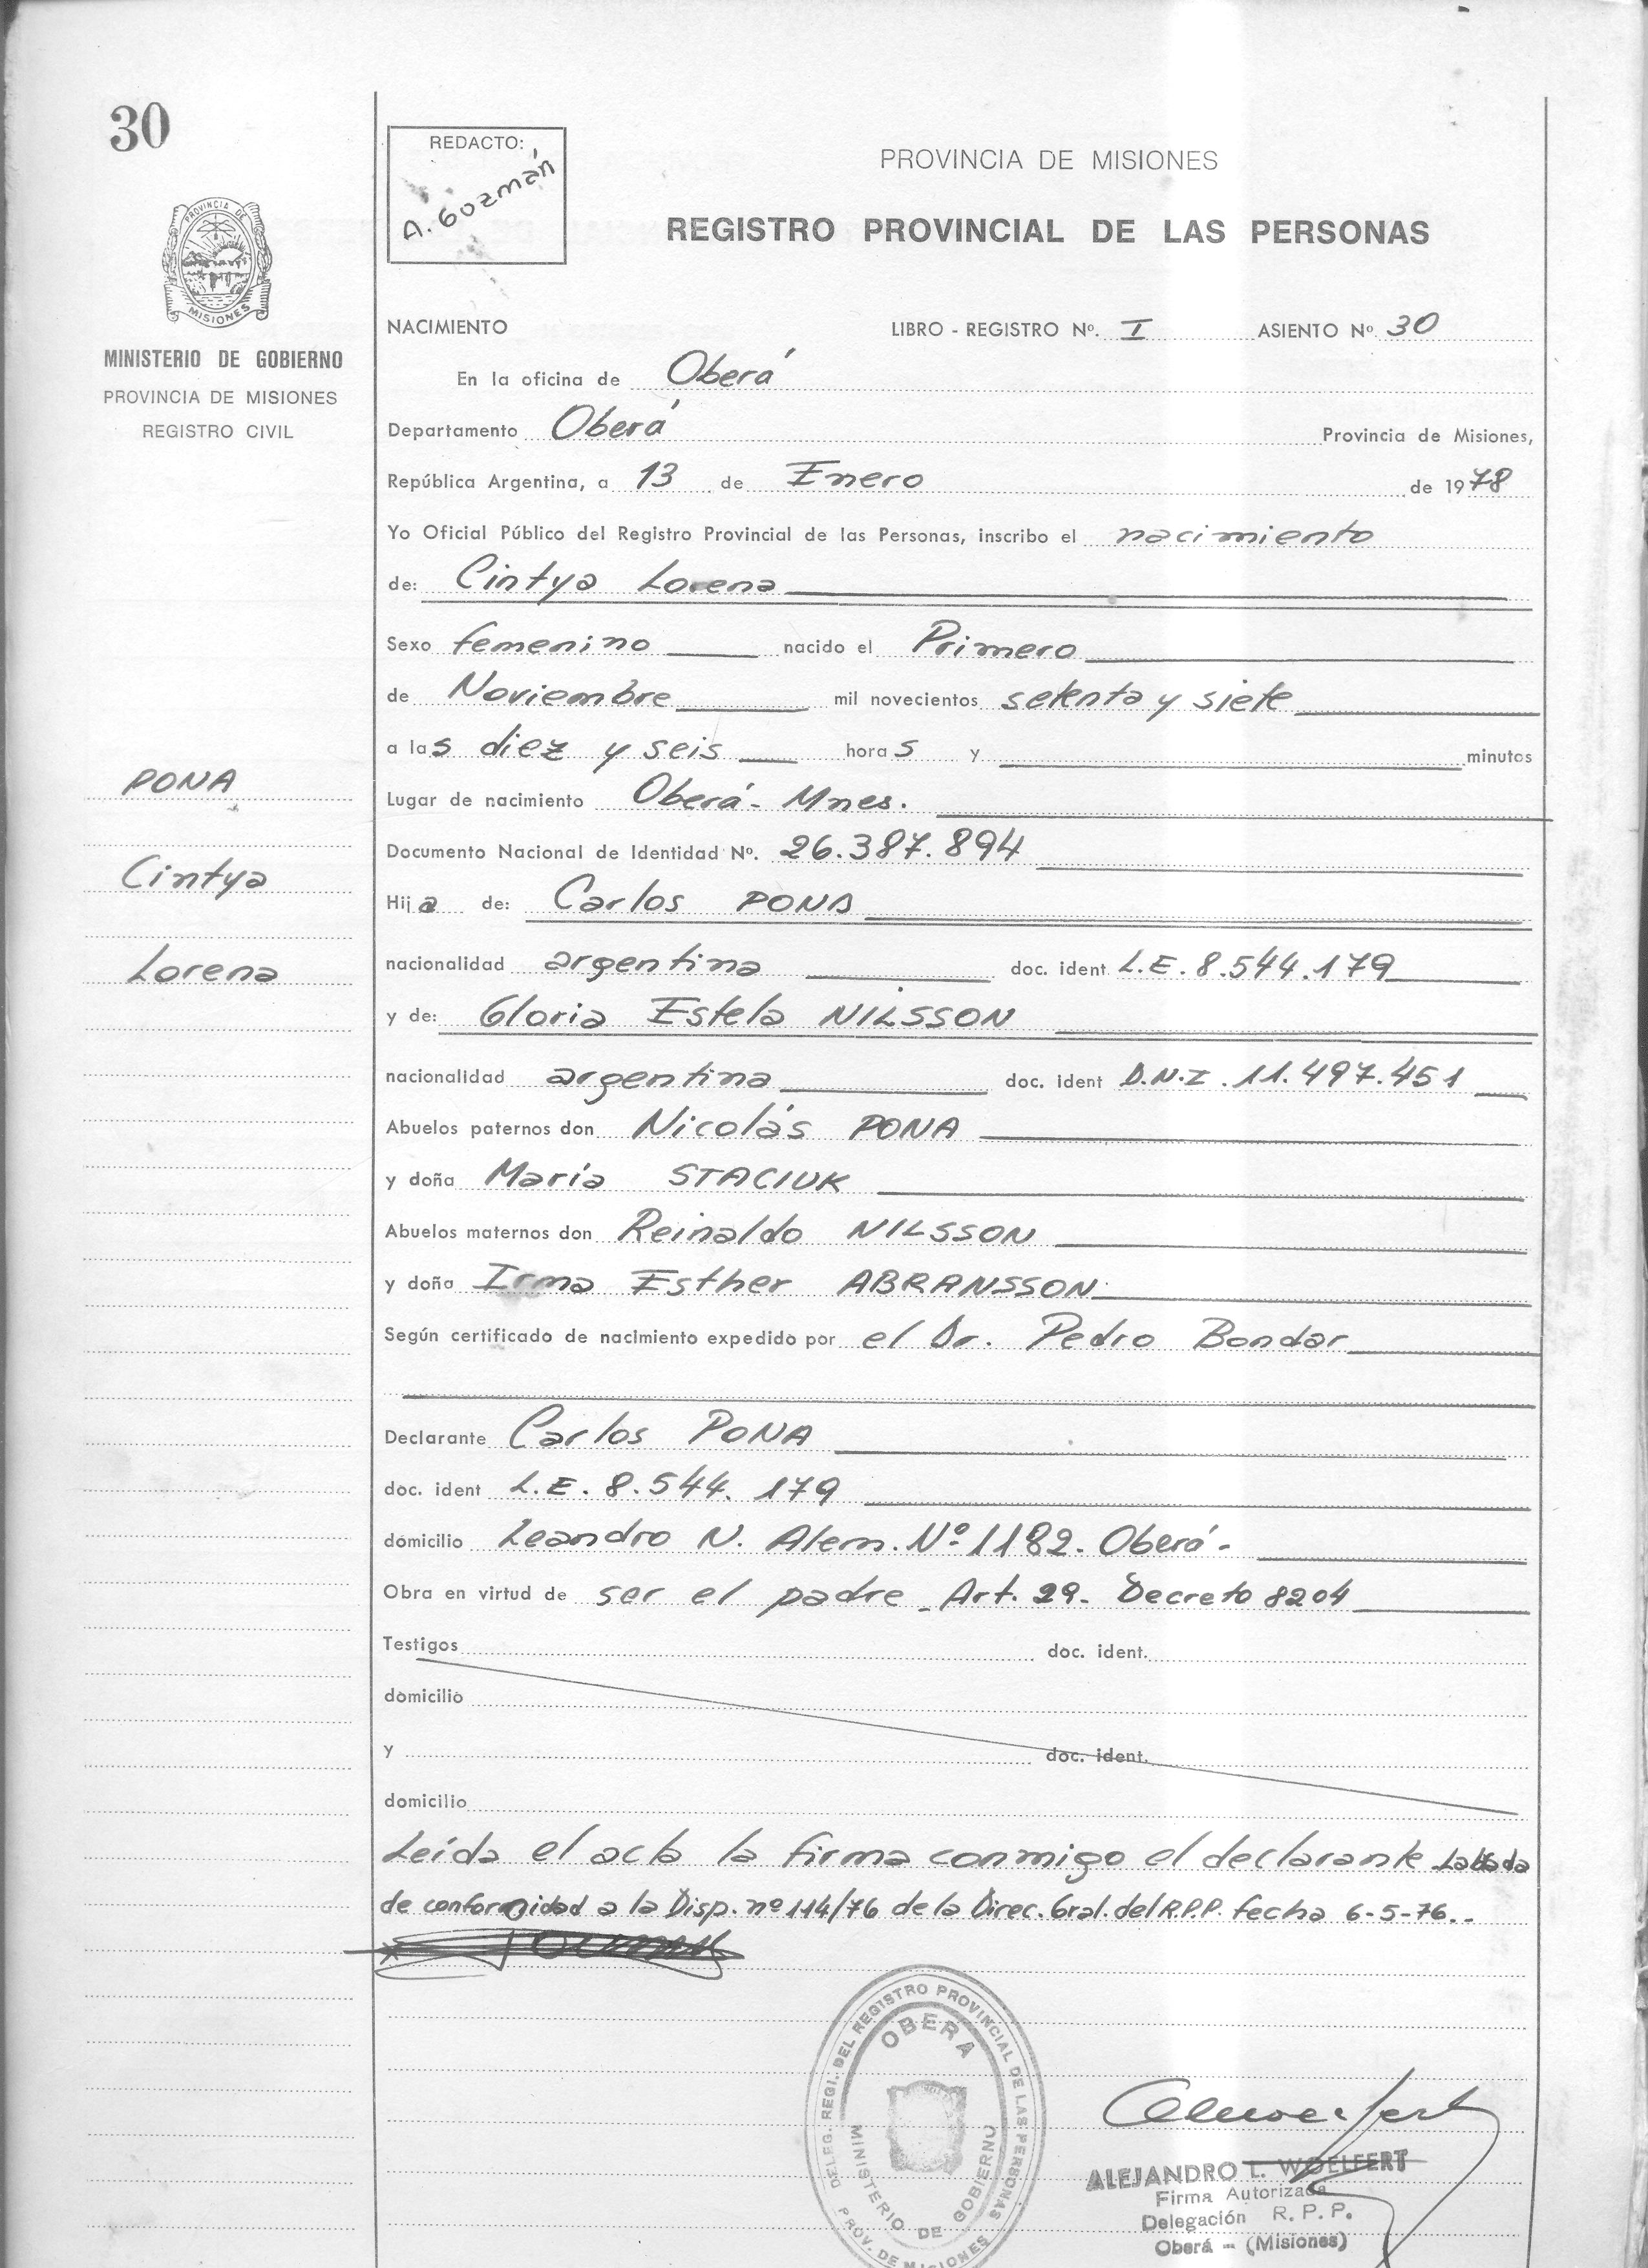 30
REDACTO:
A. Guzmán
PROVINCIA DE MISIONES
REGISTRO PROVINCIAL DE LAS PERSONAS
PROVINCIA DE
MISIONES
MINISTERIO DE GOBIERNO
PROVINCIA DE MISIONES
REGISTRO CIVIL
NACIMIENTO LIBRO - REGISTRO Nº. I ASIENTO Nº 30
En la oficina de Oberá
Departamento Oberá Provincia de Misiones,
República Argentina, a 13 de Enero de 1978
Yo Oficial Público del Registro Provincial de las Personas, inscribo el nacimiento
de: Cintya Lorena
Sexo femenino nacido el Primero
de Noviembre mil novecientos setenta y siete
a las diez y seis horas y minutos
PONA
Cintya
Lorena
Lugar de nacimiento Oberá- Mnes.
Documento Nacional de Identidad Nº. 26.387.894
Hija de: Carlos PONA
nacionalidad argentina doc. ident L.E. 8.544.179
y de: Gloria Estela NILSSON
nacionalidad argentina doc. ident D.N.I. 11.497.451
Abuelos paternos don Nicolás PONA
y doña María STACIUK
Abuelos maternos don Reinaldo NILSSON
y doña Irma Esther ABRANSSON
Según certificado de nacimiento expedido por el Dr. Pedro Bondar
Declarante Carlos PONA
doc. ident L.E. 8.544.179
domicilio Leandro N. Alem. Nº 1182- Oberá-
Obra en virtud de ser el padre - Art. 29- Decreto 8204
Testigos doc. ident.
domicilio
y doc. ident.
domicilio
Leída el acta la firma conmigo el declarante Labrada
de conformidad a la Disp. nº 114/76 de la Direc. Gral. del R.P.P. fecha 6-5-76..
DELEG. REGI. DEL REGISTRO PROVINCIAL DE LAS PERSONAS
OBERA
MINISTERIO DE GOBIERNO
PROV. DE MISIONES
ALEJANDRO L. WOELFERT
Firma Autorizada
Delegación R. P. P.
Oberá - (Misiones)